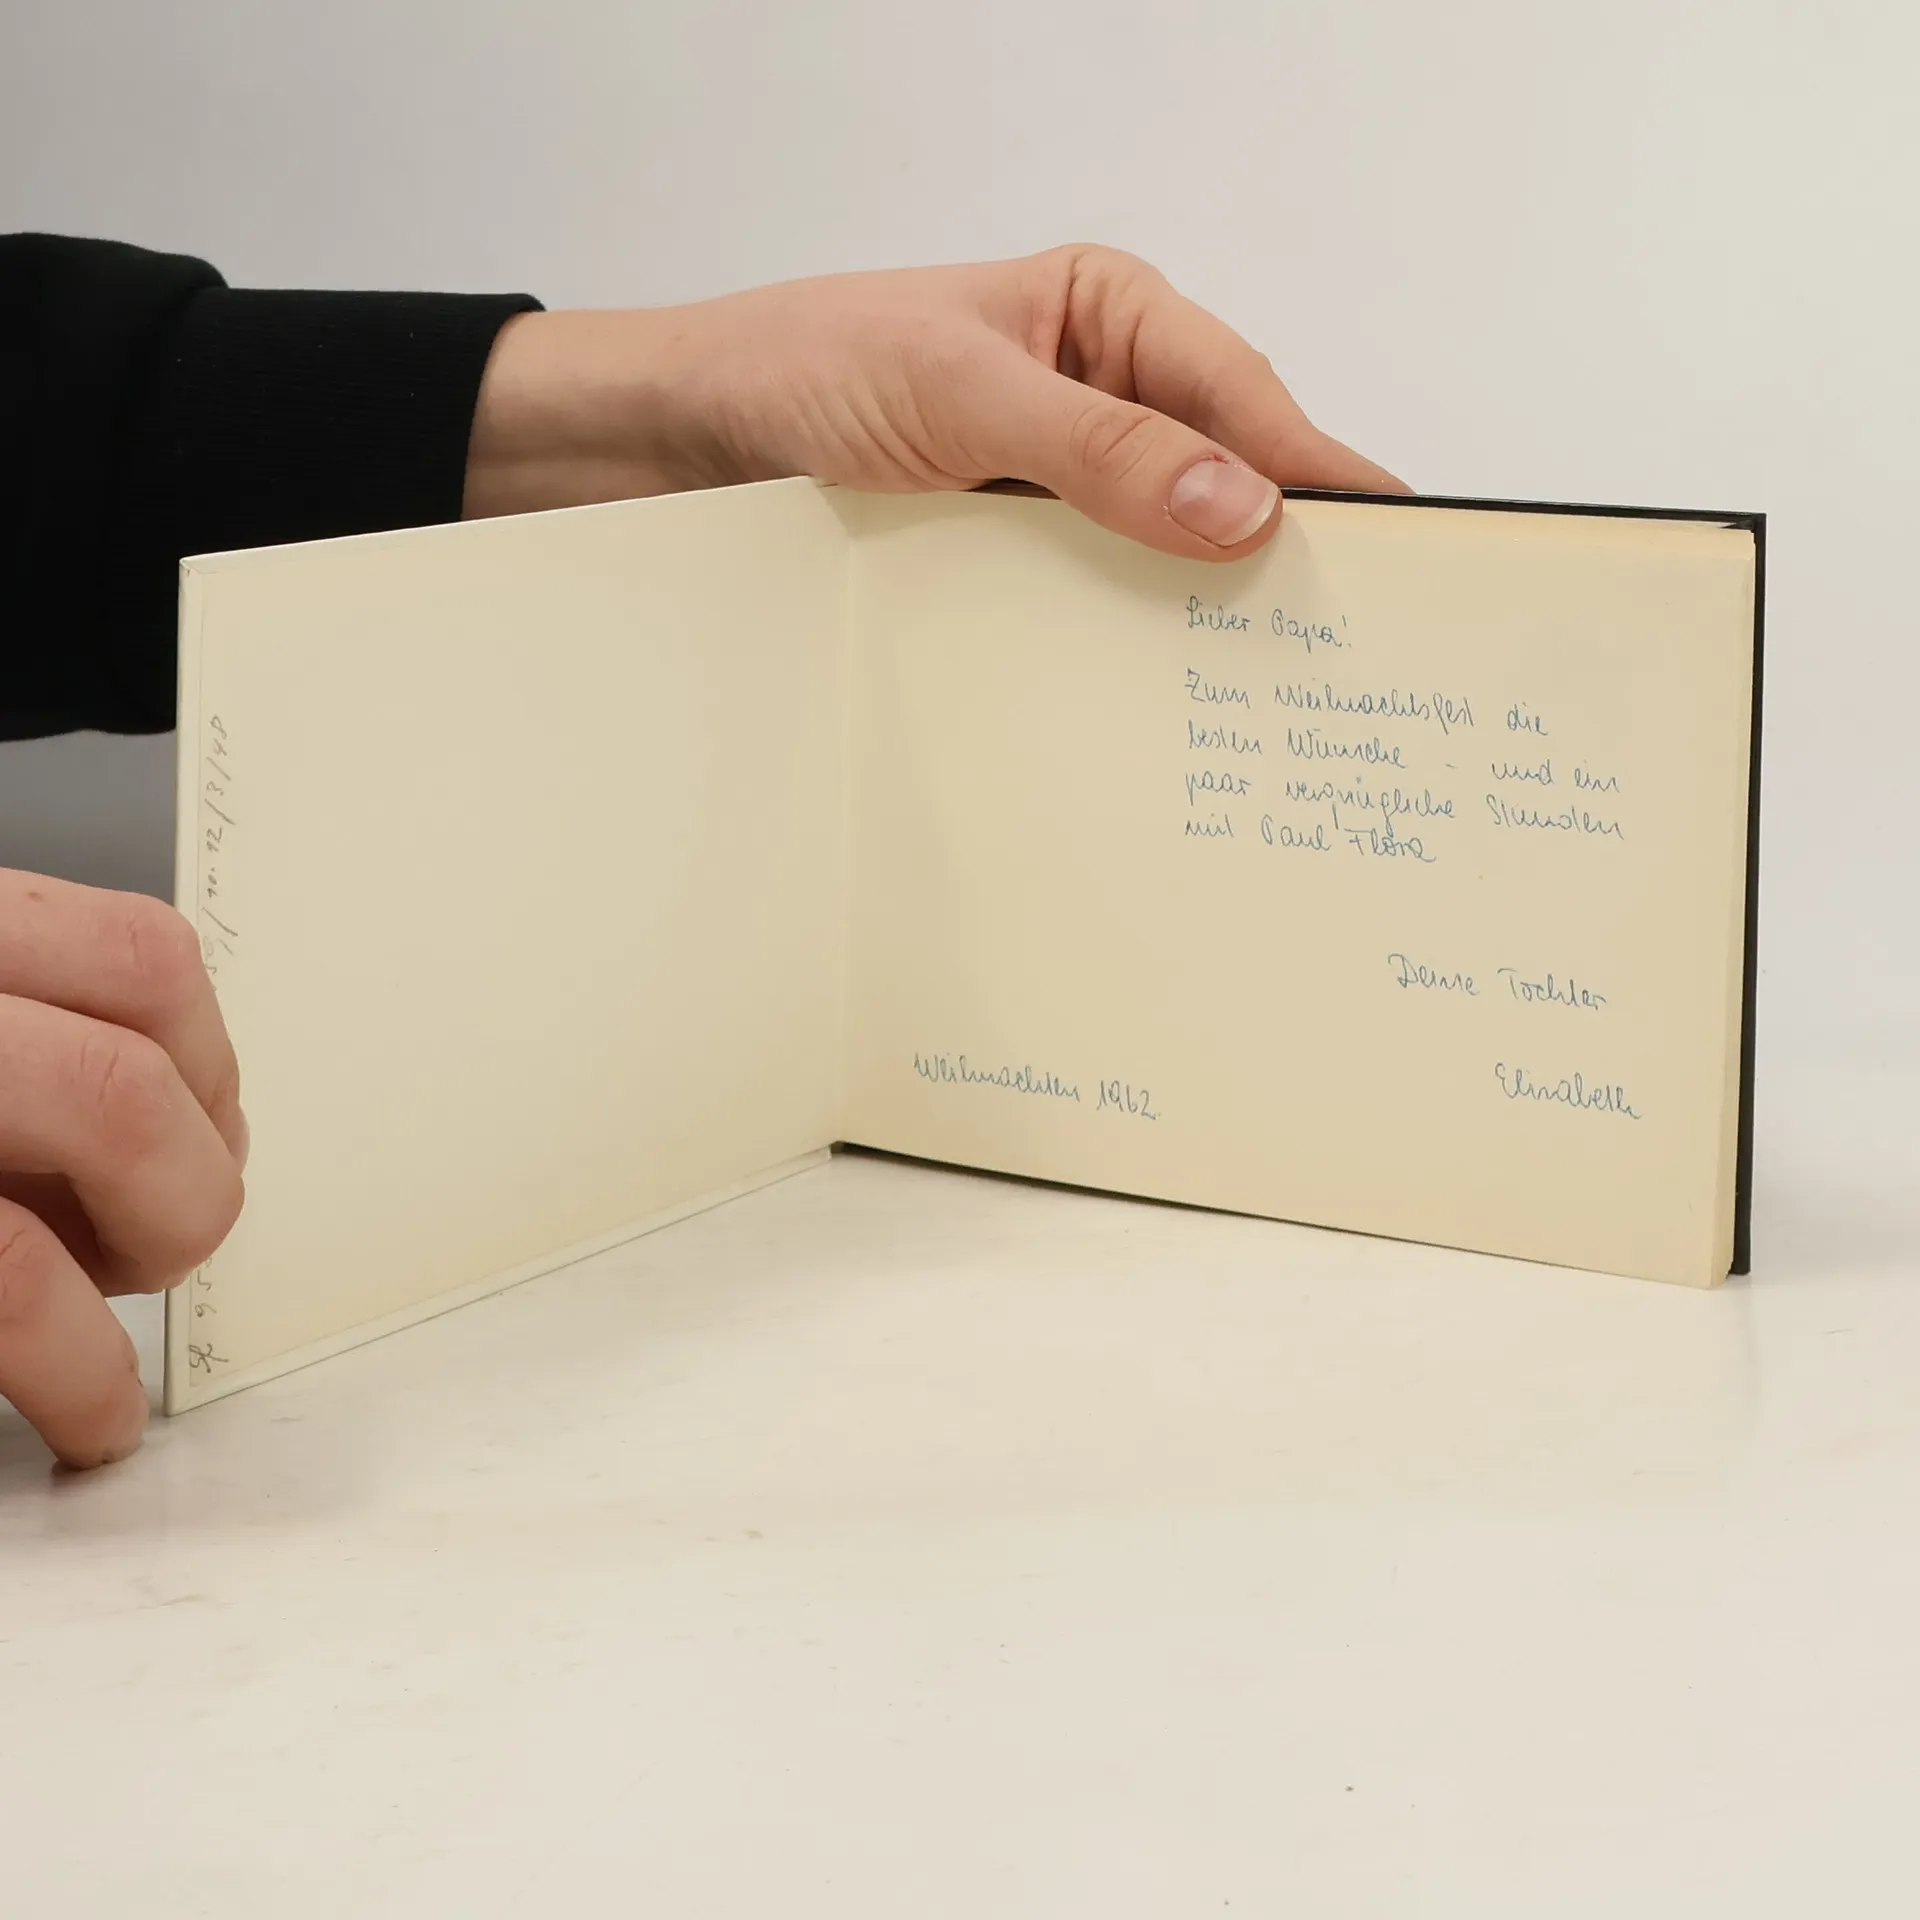 Lieber Papa!
Zum Weihnachtsfest die
besten Wünsche - und ein
paar vergnügliche Stunden
mit Paul Flora!
Deine Tochter
Elisabeth
Weihnachten 1962.
/10.12/3/48